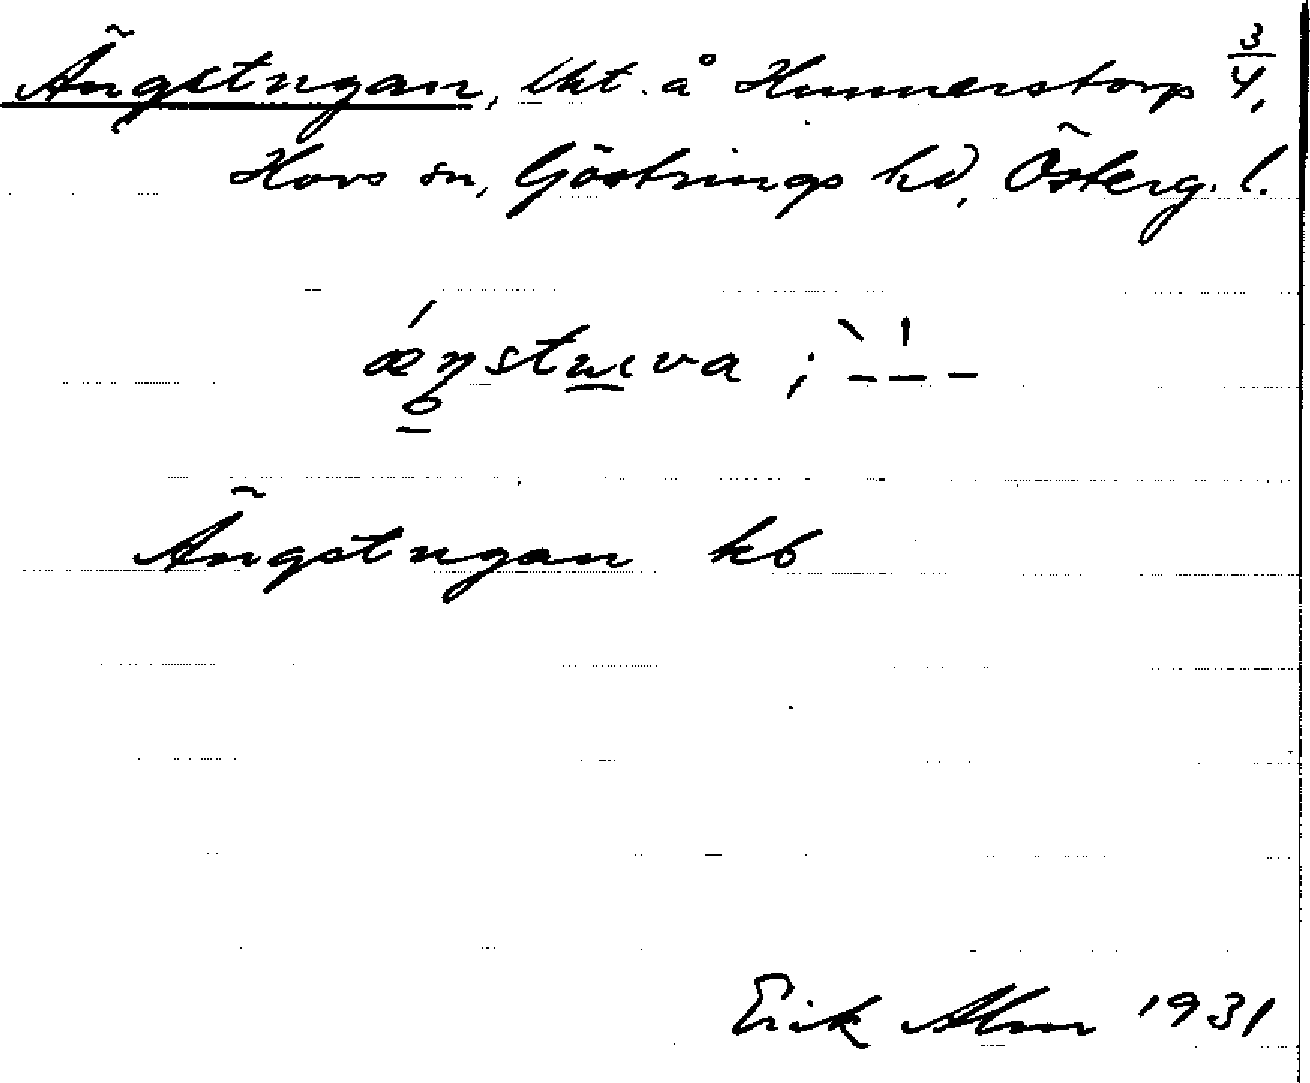 Ängstugan, lht. å Hunnerstorp 3/4,
Hovs sn, Göstrings hd, Österg. l.
Ängstugan kb
Erik Alm 1931